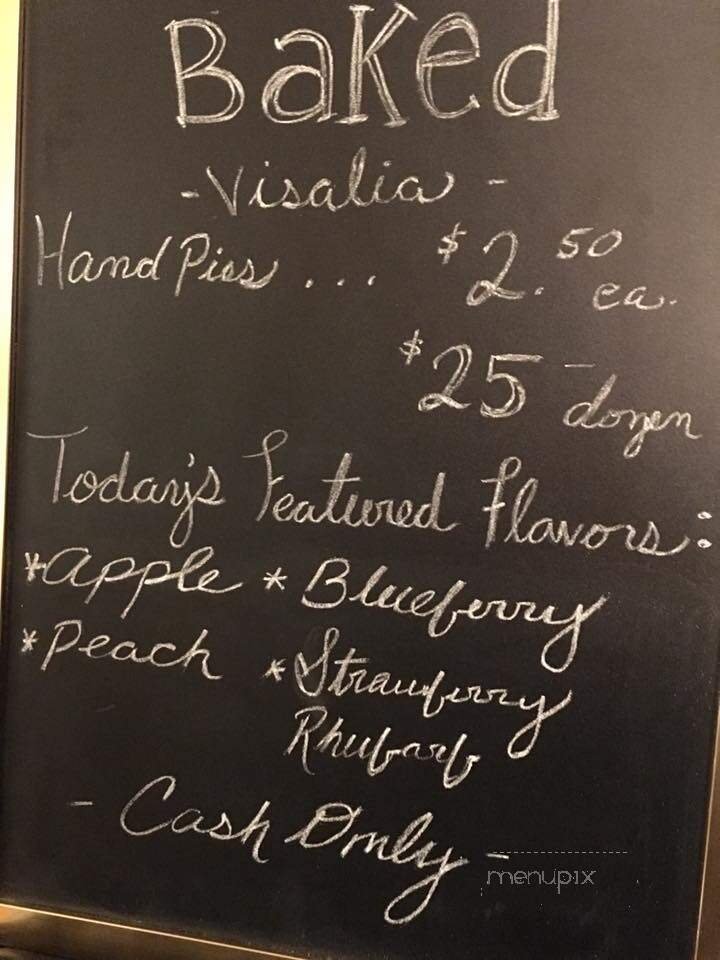 Baked
- Visalia -
Hand Pies ... $2.50 ea.
$25 - dozen
Today's Featured Flavors:
*Apple *Blueberry
*Peach *Strawberry
Rhubarb
- Cash Only -
menupix